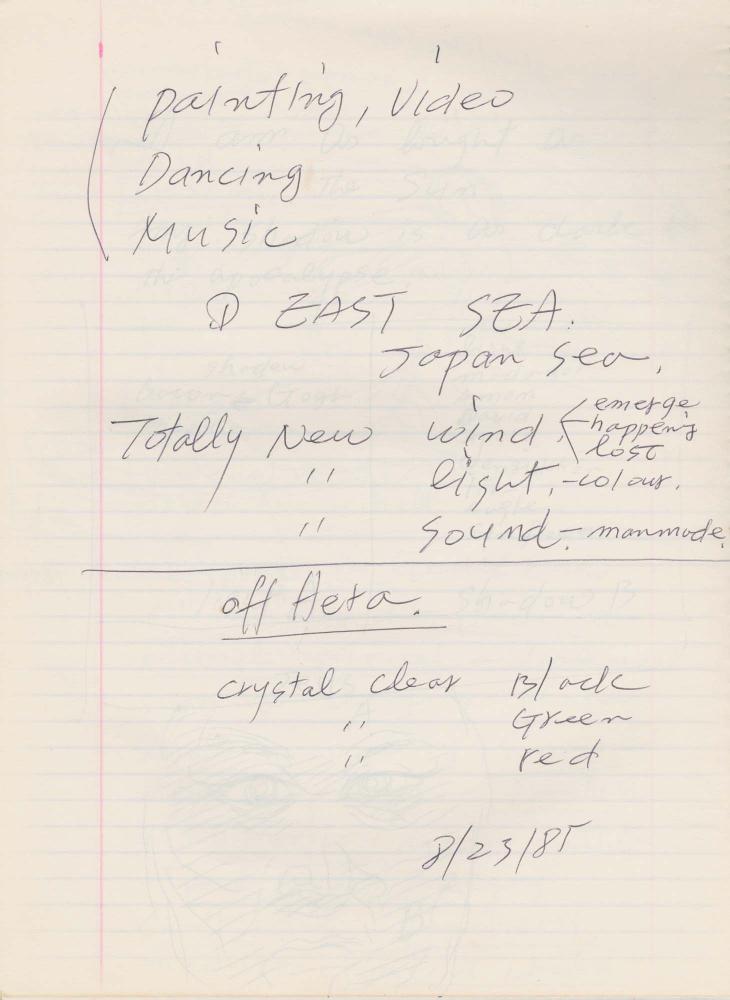 painting, Video
Dancing
Music
① EAST SEA.
Japan Sea,
Totally New wind, emerge
happening
lost
" light, -colour.
" sound - manmade.
off Heta.
crystal clear Black
" Green
" red
8/23/85